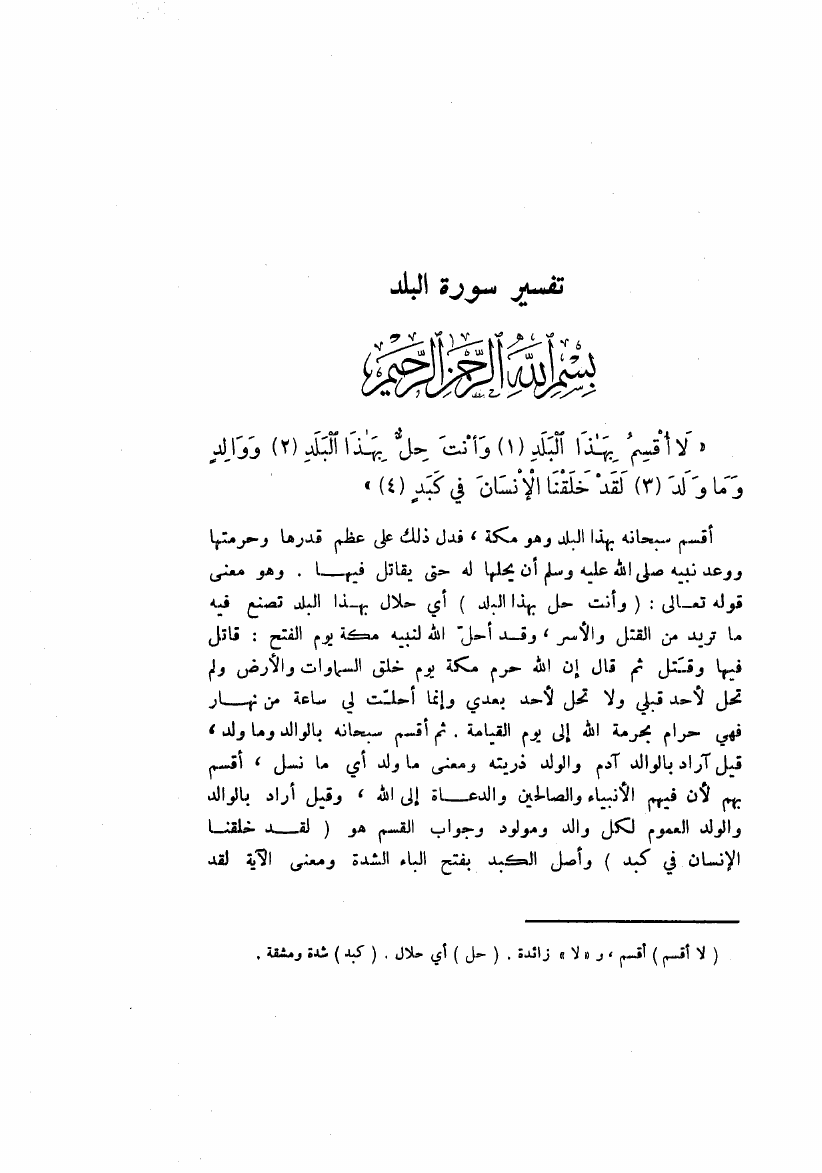 تفسير سورة البلد
بِسْمِ ٱللَّهِ ٱلرَّحْمَٰنِ ٱلرَّحِيمِ
« لَا أُقْسِمُ بِهَٰذَا ٱلْبَلَدِ (١) وَأَنْتَ حِلٌّ بِهَٰذَا ٱلْبَلَدِ (٢) وَوَالِدٍ
وَمَا وَلَدَ (٣) لَقَدْ خَلَقْنَا الْإِنْسَانَ فِي كَبَدٍ (٤) »
أقسم سبحانه بهذا البلد وهو مكة ، فدل ذلك على عظم قدرها وحرمتها
ووعد نبيه صلى الله عليه وسلم أن يحلها له حتى يقاتل فيهـــا . وهو معنى
قوله تعـالى : ( وأنت حل بهذا البلد ) أي حلال بهـذا البلد تصنع فيه
ما تريد من القتل والأسر ، وقـد أحلّ الله لنبيه مكة يوم الفتح : قاتل
فيها وقتّل ثم قال إن الله حرم مكة يوم خلق السماوات والأرض ولم
تحل لأحد قبلي ولا تحل لأحد بعدي وإنما أحلّت لي ساعة من نهــار
فهي حرام بحرمة الله إلى يوم القيامة . ثم أقسم سبحانه بالوالد وما ولد ،
قيل آراد بالوالد آدم والولد ذريته ومعنى ما ولد أي ما نسل ، أقسم
بهم لأن فيهم الأنبياء والصالحين والدعــاة إلى الله ، وقيل أراد بالوالد
والولد العموم لكل والد ومولود وجواب القسم هو ( لقــد خلقنـا
الإنسان في كبد ) وأصل الكبد بفتح الباء الشدة ومعنى الآية لقد
( لا أقسم ) أقسم ، و « لا » زائدة . ( حل ) أي حلال . ( كبد ) شدة ومشقة .